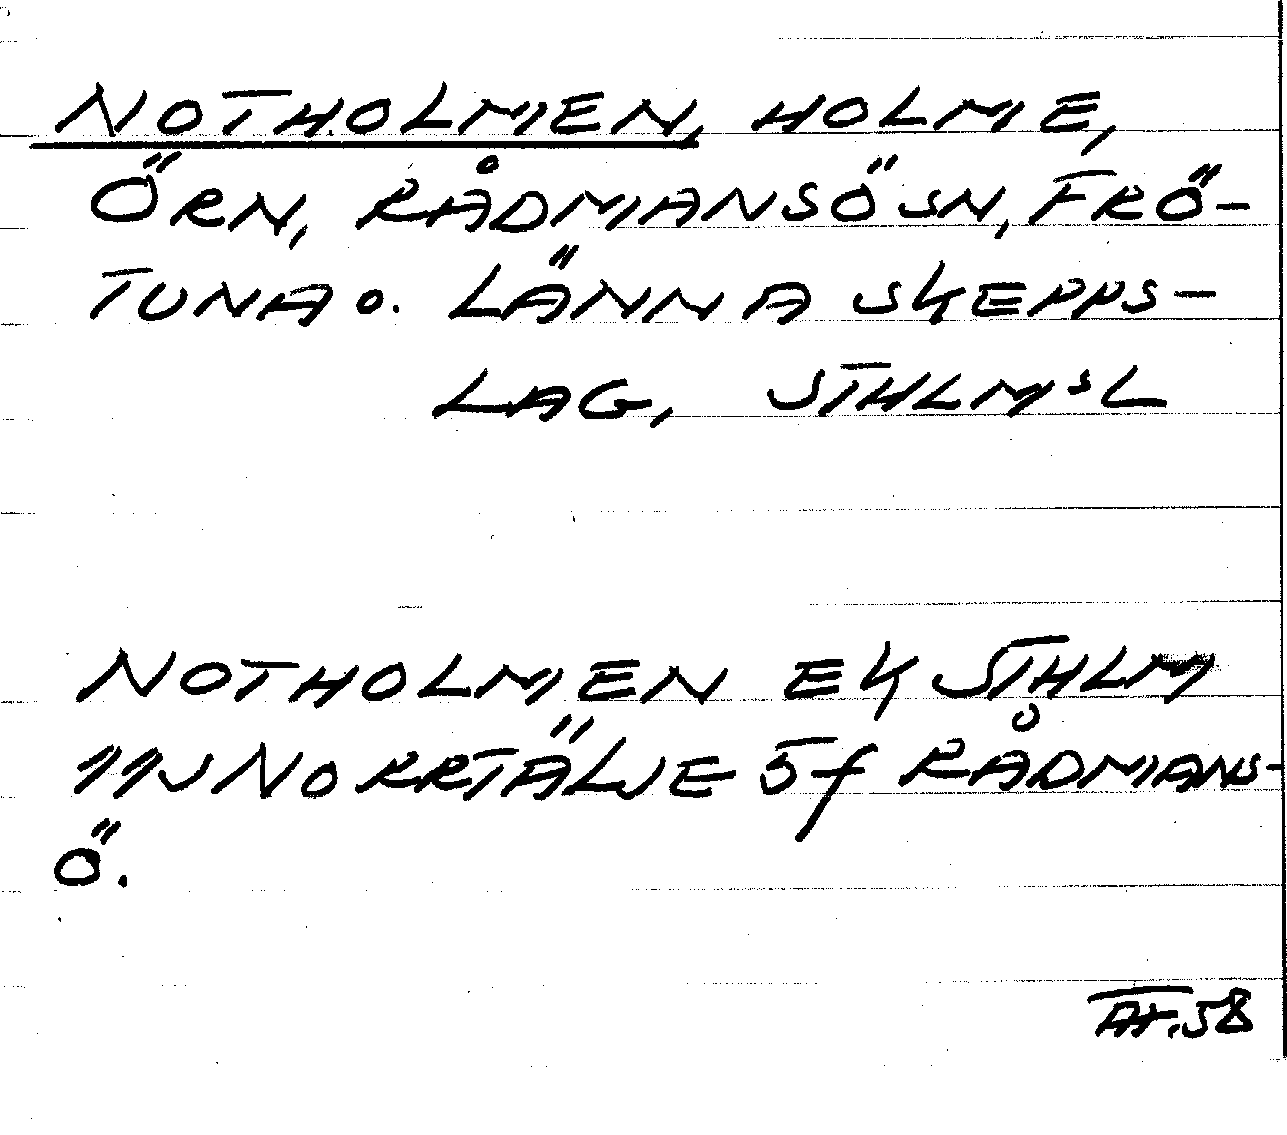 NOTHOLMEN, HOLME,
ÖRN, RÅDMANSÖ SN, FRÖ-
TUNA O. LÄNNA SKEPPS-
LAG, STHLMSL
NOTHOLMEN EK STHLM
11J NORRTÄLJE 5f RÅDMANS-
Ö.
58